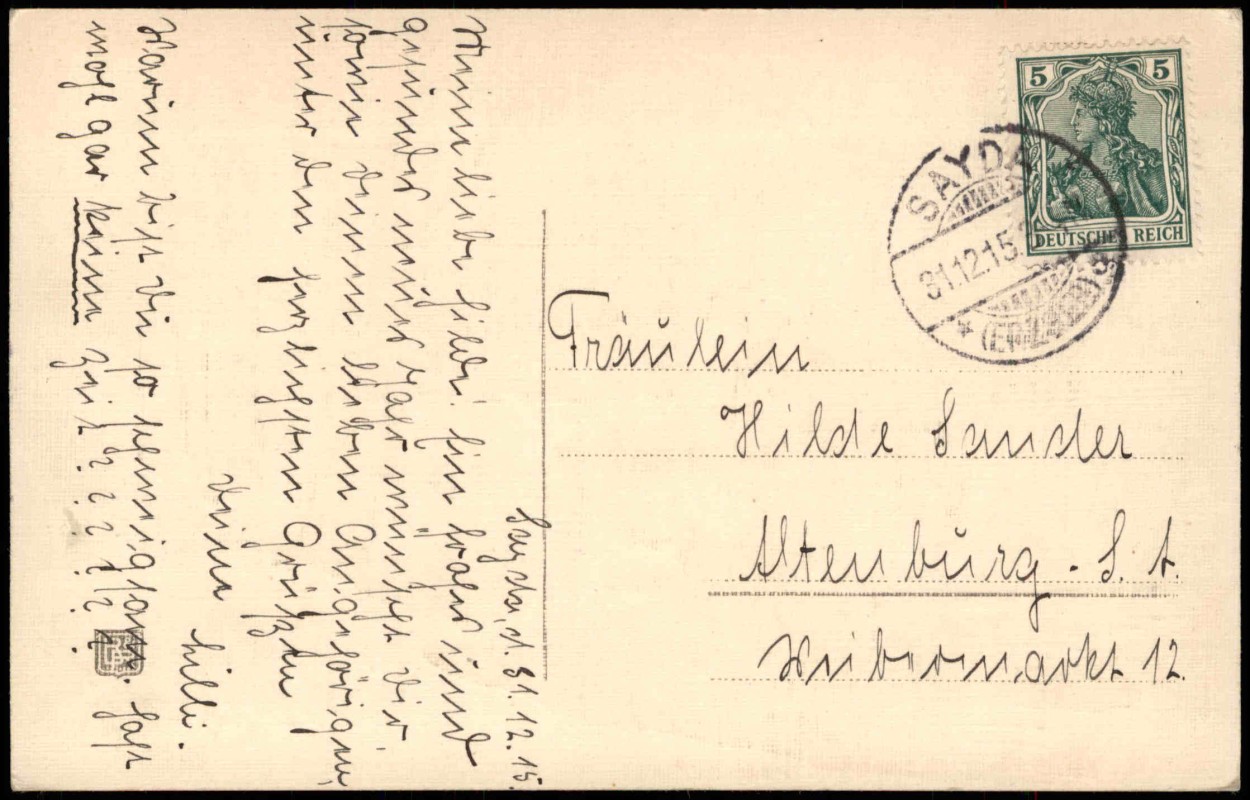 Sayda, d. 31.12.15.
Meine liebe Hilde! Ein frohes und
gesundes neues Jahr wünscht dir
sowie deinen lieben Angehörigen,
unter den herzlichsten Grüßen
deine Lilli.
Warum bist du so schweigsam. Hast
wohl gar keine Zeit? ? ? ? ? ?
5 5
DEUTSCHES REICH
SAYDA
31.12.15
* (ERZGEB)
Fräulein
Hilde Sander
Altenburg - S. A.
Weibermarkt 12.